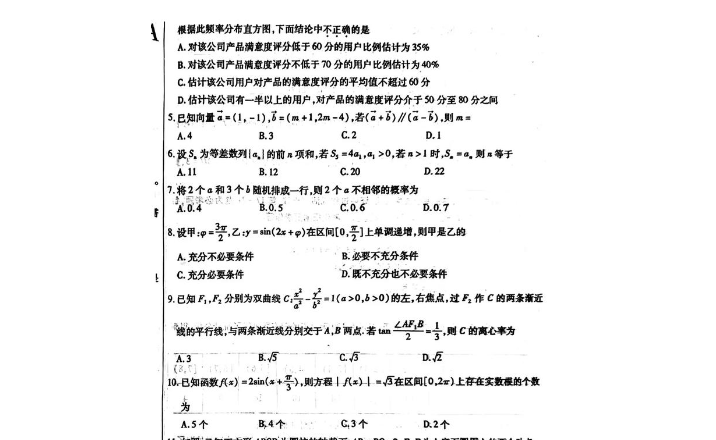 根据此频率分布直方图,下面结论中不正确的是
A.对该公司产品满意度评分低于60分的用户比例估计为35%
B.对该公司产品满意度评分不低于70分的用户比例估计为40%
C.估计该公司用户对产品的满意度评分的平均值不超过60分
D.估计该公司有一半以上的用户,对产品的满意度评分介于50分至80分之间
5.已知向量a⃗=(1,-1),b⃗=(m+1,2m-4),若(a⃗+b⃗)∥(a⃗-b⃗),则m=
A.4 B.3 C.2 D.1
6.设Sₙ为等差数列{aₙ}的前n项和,若S₅=4a₁,a₁>0,若n>1时,Sₙ=aₙ则n等于
A.11 B.12 C.20 D.22
7.将2个a和3个b随机排成一行,则2个a不相邻的概率为
A.0.4 B.0.5 C.0.6 D.0.7
8.设甲:φ=3π/2,乙:y=sin(2x+φ)在区间[0,π/2]上单调递增,则甲是乙的
A.充分不必要条件 B.必要不充分条件
C.充分必要条件 D.既不充分也不必要条件
9.已知F₁,F₂分别为双曲线C:x²/a²-y²/b²=1(a>0,b>0)的左,右焦点,过F₂作C的两条渐近
线的平行线,与两条渐近线分别交于A,B两点.若tan ∠AF₁B/2=1/3,则C的离心率为
A.3 B.√5 C.√3 D.√2
10.已知函数f(x)=2sin(x+π/3),则方程|f(x)|=√3在区间[0,2π)上存在实数根的个数
为
A.5个 B.4个 C.3个 D.2个